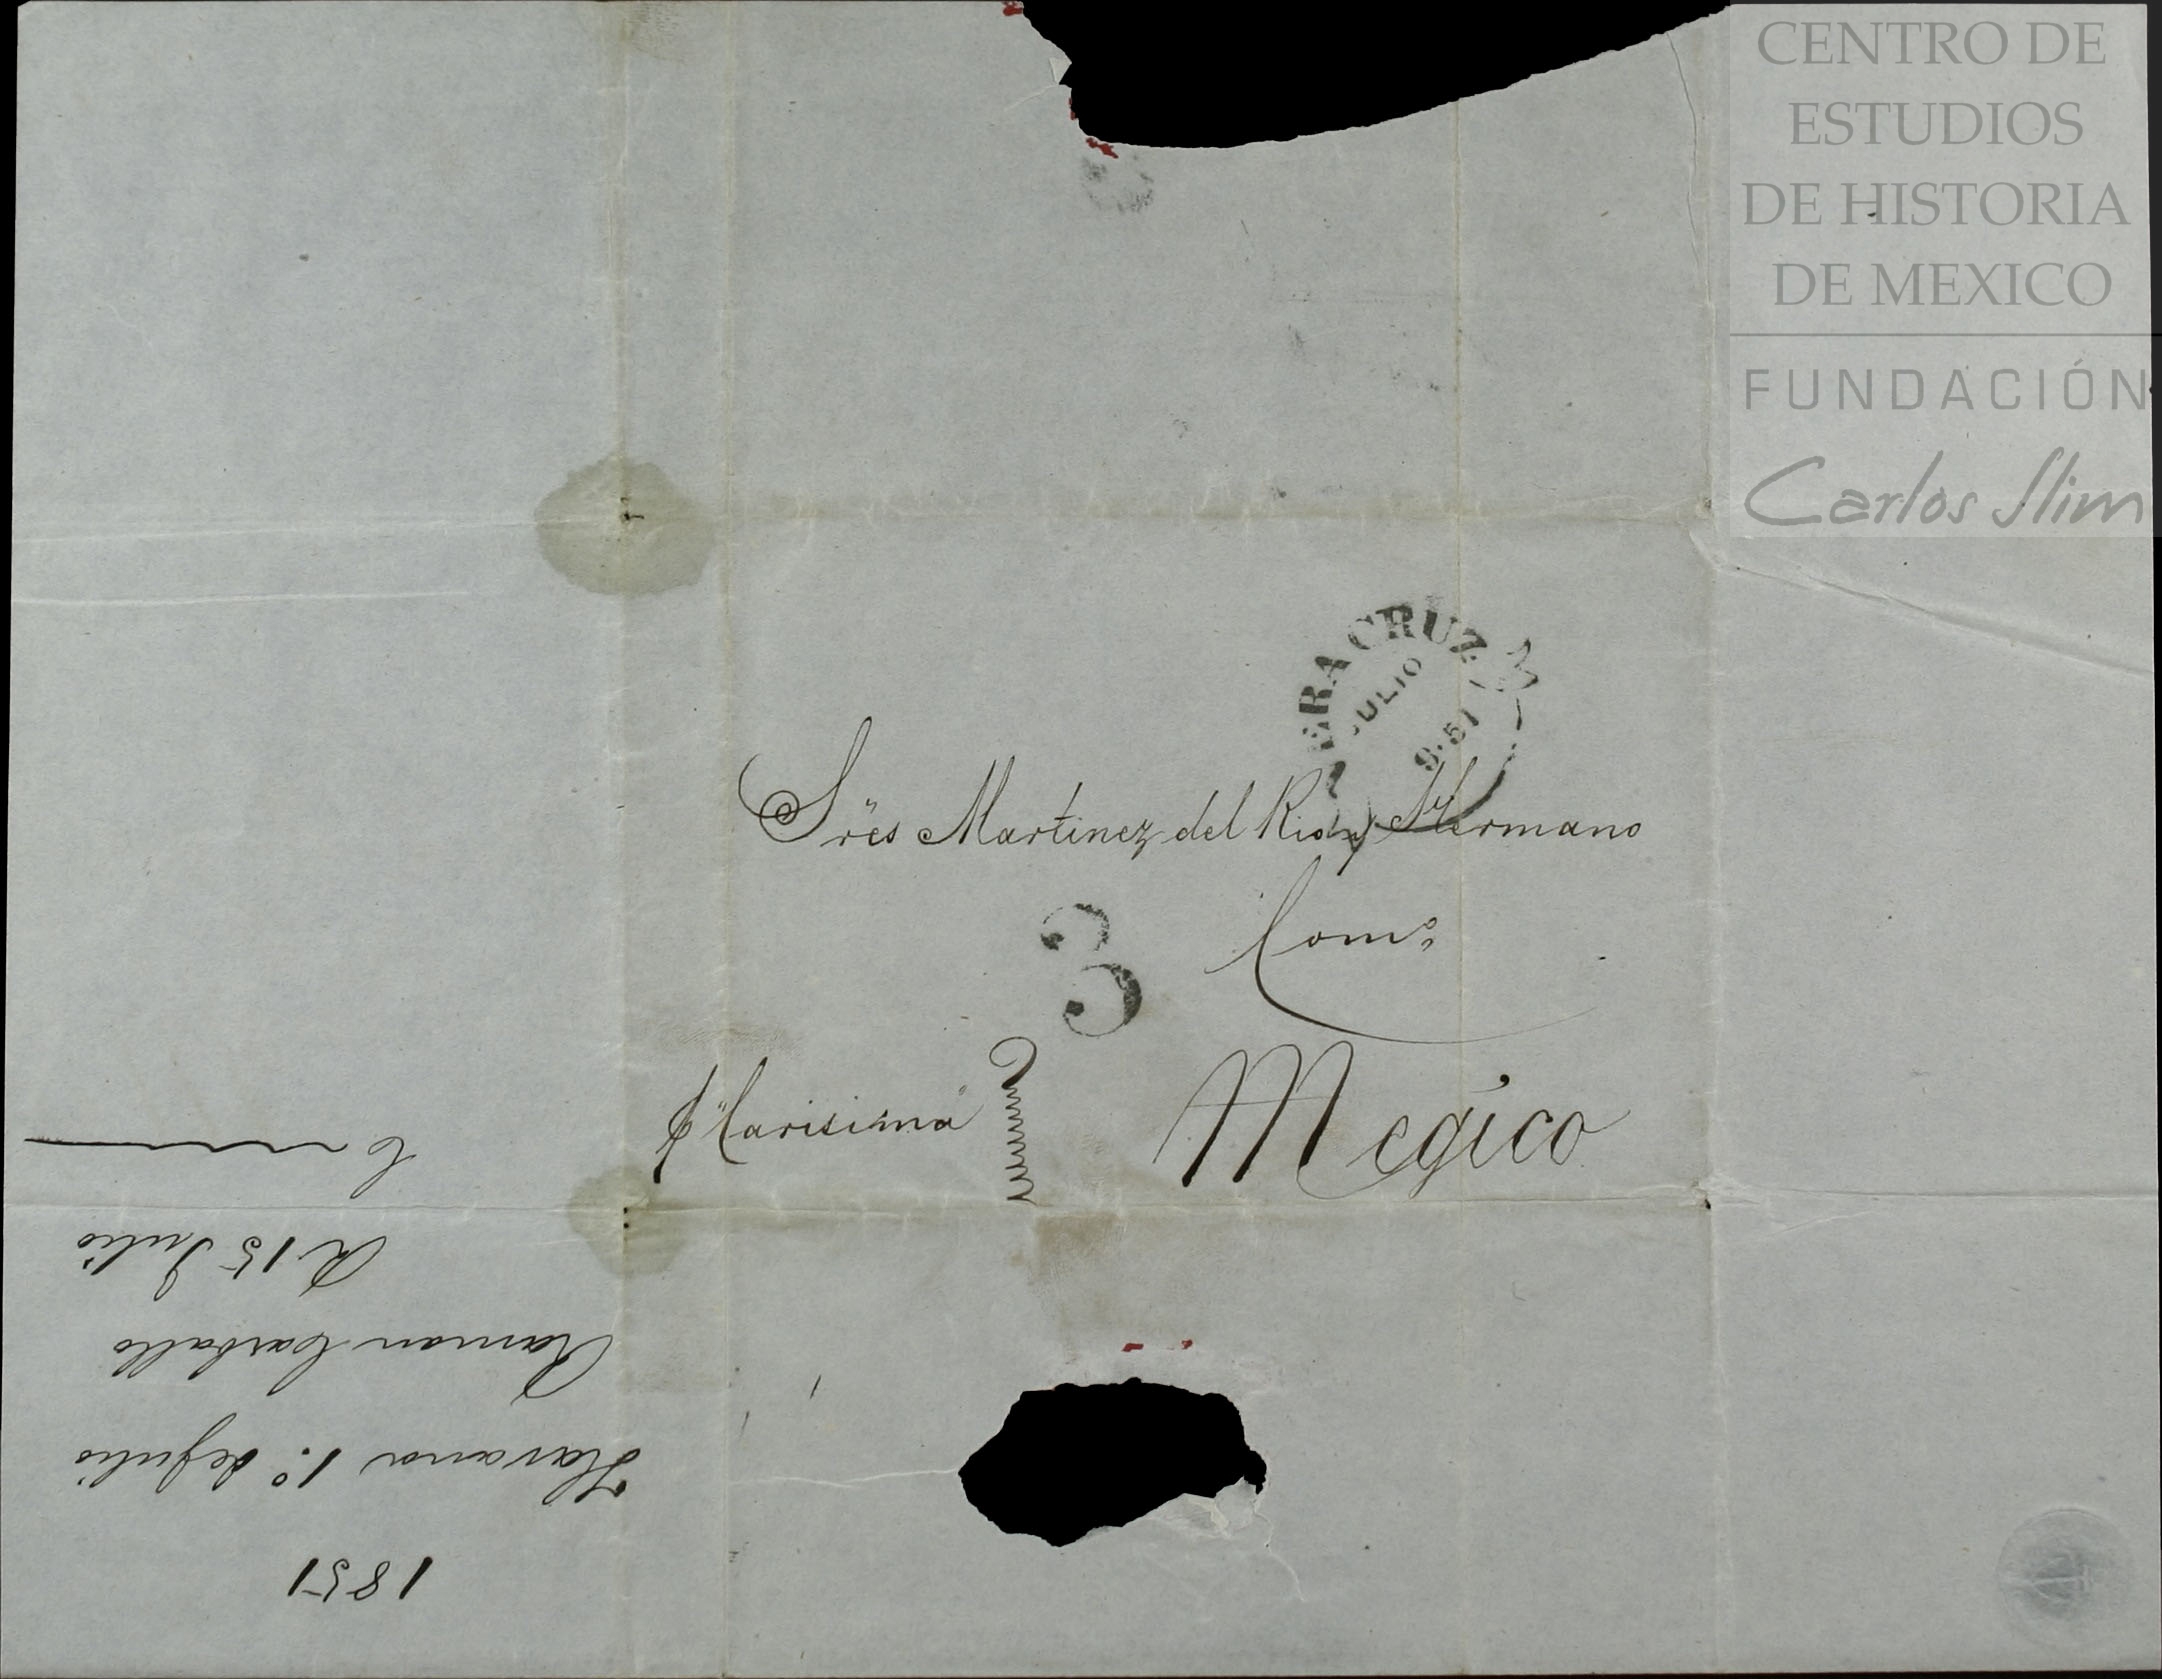 CENTRO DE
ESTUDIOS
DE HISTORIA
DE MEXICO
FUNDACIÓN
Carlos Slim
VERA CRUZ
JULIO
9. 51
Sres Martinez del Rio y Hermano
3
Como
"Carisima"
Megico
1851
Havana 1º de Julio
Ramon Carballo
R 15 Julio